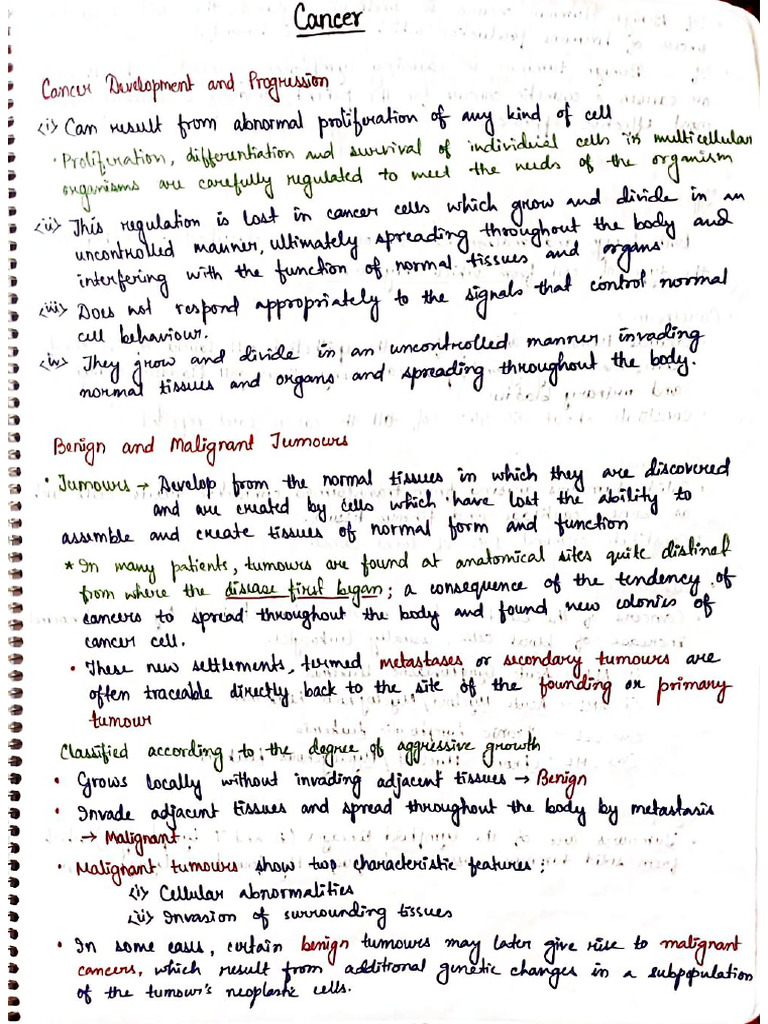 Cancer
Cancer Development and Progression
<i> Can result from abnormal proliferation of any kind of cell
• Proliferation, differentiation and survival of individual cells in multicellular
organisms are carefully regulated to meet the needs of the organism
<ii> This regulation is lost in cancer cells which grow and divide in an
uncontrolled manner, ultimately spreading throughout the body and
interfering with the function of normal tissues and organs
<iii> Does not respond appropriately to the signals that control normal
cell behaviour.
<iv> They grow and divide in an uncontrolled manner invading
normal tissues and organs and spreading throughout the body.
Benign and Malignant Tumours
• Tumours → Develop from the normal tissues in which they are discovered
and are created by cells which have lost the ability to
assemble and create tissues of normal form and function
* In many patients, tumours are found at anatomical sites quite distinct
from where the disease first began; a consequence of the tendency of
cancers to spread throughout the body and found new colonies of
cancer cell.
• These new settlements, termed metastases or secondary tumours are
often traceable directly back to the site of the founding or primary
tumour
Classified according to the degree of aggressive growth
• Grows locally without invading adjacent tissues → Benign
• Invade adjacent tissues and spread throughout the body by metastasis
→ Malignant
• Malignant tumours show two characteristic features:
<i> Cellular abnormalities
<ii> Invasion of surrounding tissues
• In some cases, certain benign tumours may later give rise to malignant
cancers, which result from additional genetic changes in a subpopulation
of the tumour's neoplastic cells.